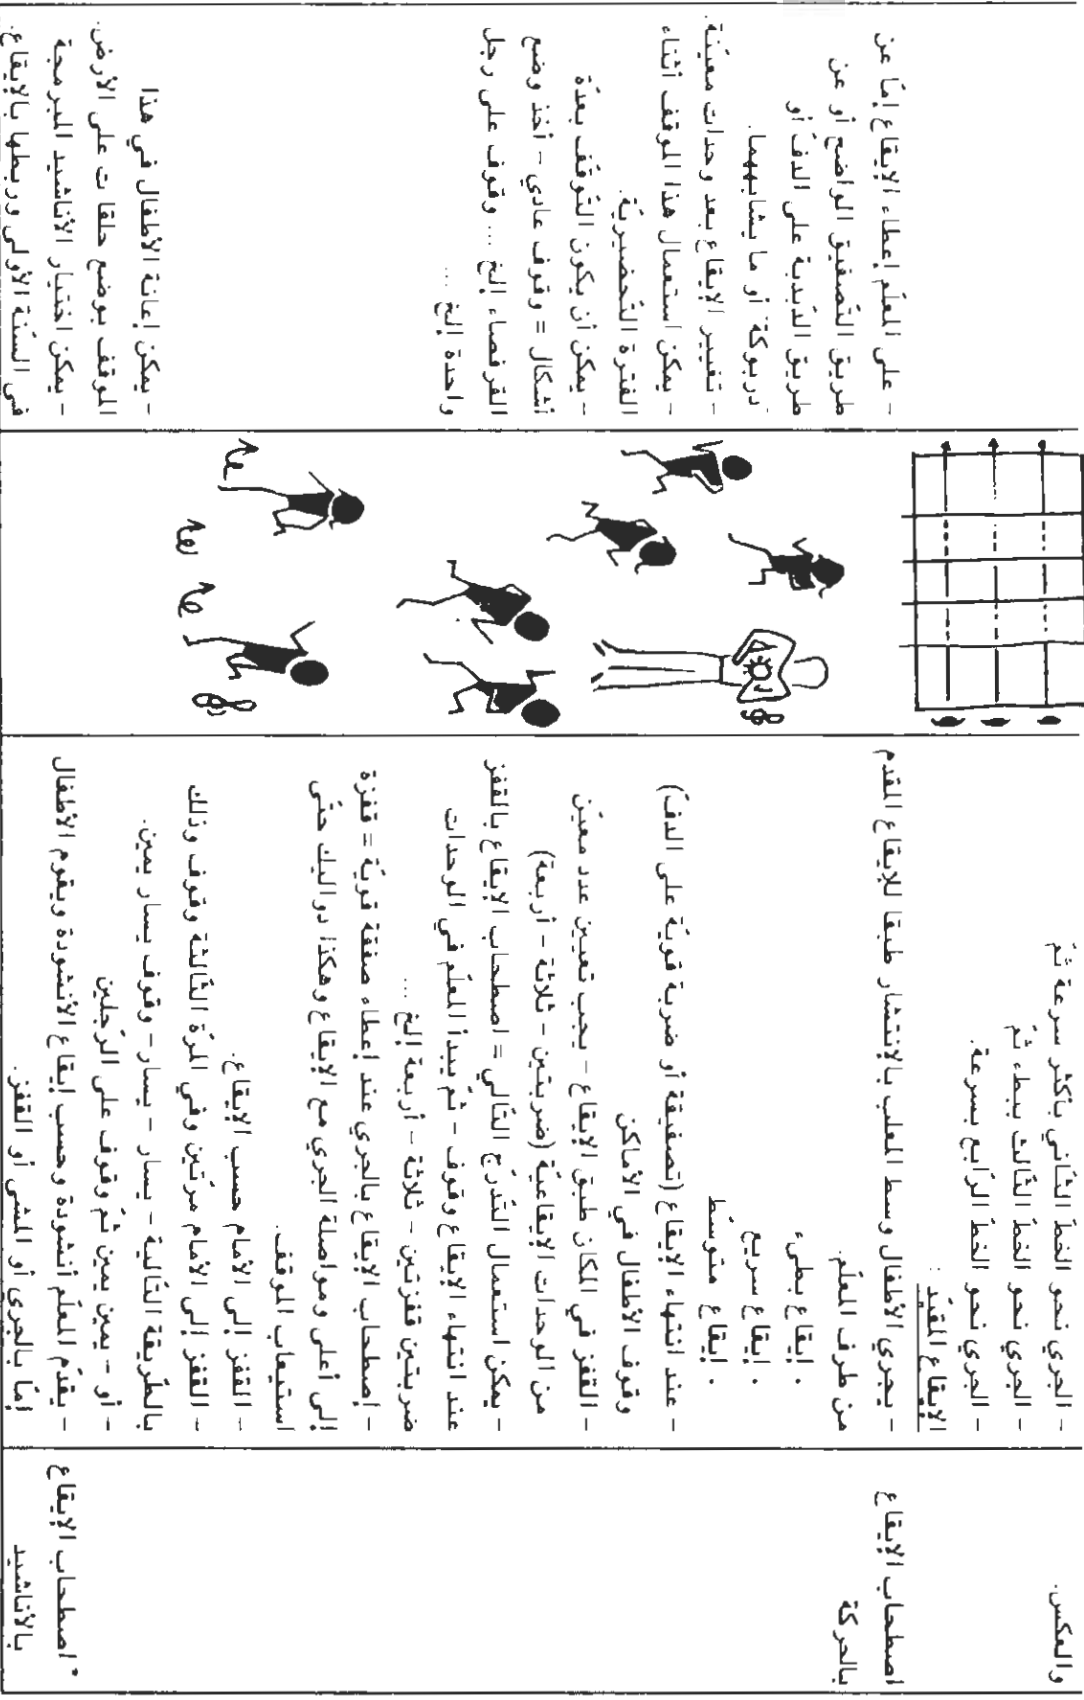 والعكس.
اصطحاب الإيقاع
بالحركة
*اصطحاب الإيقاع
بالأناشيد
- الجري نحو الخطّ الثّاني بأكثر سرعة ثمّ
- الجري نحو الخطّ الثّالث ببطء ثمّ
- الجري نحو الخطّ الرّابع بسرعة.
الإيقاع المقيّد :
- يجري الأطفال وسط الملعب بالإنتشار طبقا للإيقاع المقدم
من طرف المعلّم.
• إيقاع بطيء
• إيقاع سريع
• إيقاع متوسّط
- عند انتهاء الإيقاع (تصفيقة أو ضربة قويّة على الدفّ)
وقوف الأطفال في الأماكن
- القفز في المكان طبق الإيقاع - يجب تعيين عدد معيّن
من الوحدات الإيقاعيّة (ضربتين - ثلاثة - أربعة)
- يمكن استعمال التّدرّج التّالي = اصطحاب الإيقاع بالقفز
عند انتهاء الإيقاع وقوف - ثمّ يبدأ المعلّم في الوحدات
ضربتين قفزتين - ثلاثة - أربعة إلخ ...
- إصطحاب الإيقاع بالجري عند إعطاء صفقة قويّة = قفزة
إلى أعلى ومواصلة الجري مع الإيقاع وهكذا دواليك حتّى
استيعاب الموقف.
- القفز إلى الأمام حسب الإيقاع.
- القفز إلى الأمام مرّتين وفي المرّة الثّالثة وقوف وذلك
بالطّريقة التّالية - يسار - يسار - وقوف يسار يمين.
- أو - يمين يمين ثمّ وقوف على الرّجلين
- يقدّم المعلّم أنشودة وحسب إيقاع الأنشودة ويقوم الأطفال
إمّا بالجري أو المشي أو القفز.
- على المعلّم إعطاء الإيقاع إمّا عن
طريق التّصفيق الواضح أو عن
طريق الدّبدبة على الدفّ أو
دربوكة" أو ما يشابههما.
- تغيير الإيقاع بعد وحدات معيّنة.
- يمكن استعمال هذا الموقف أثناء
الفترة التّحضيريّة.
- يمكن أن يكون التّوقّف بعدّة
أشكال = وقوف عادي - أخذ وضع
القرفصاء إلخ ... وقوف على رجل
واحدة إلخ ...
- يمكن إعانة الأطفال في هذا
الموقف بوضع حلقات على الأرض.
- يمكن اختيار الأناشيد المبرمجة
في السّنة الأولى وربطها بالإيقاع.